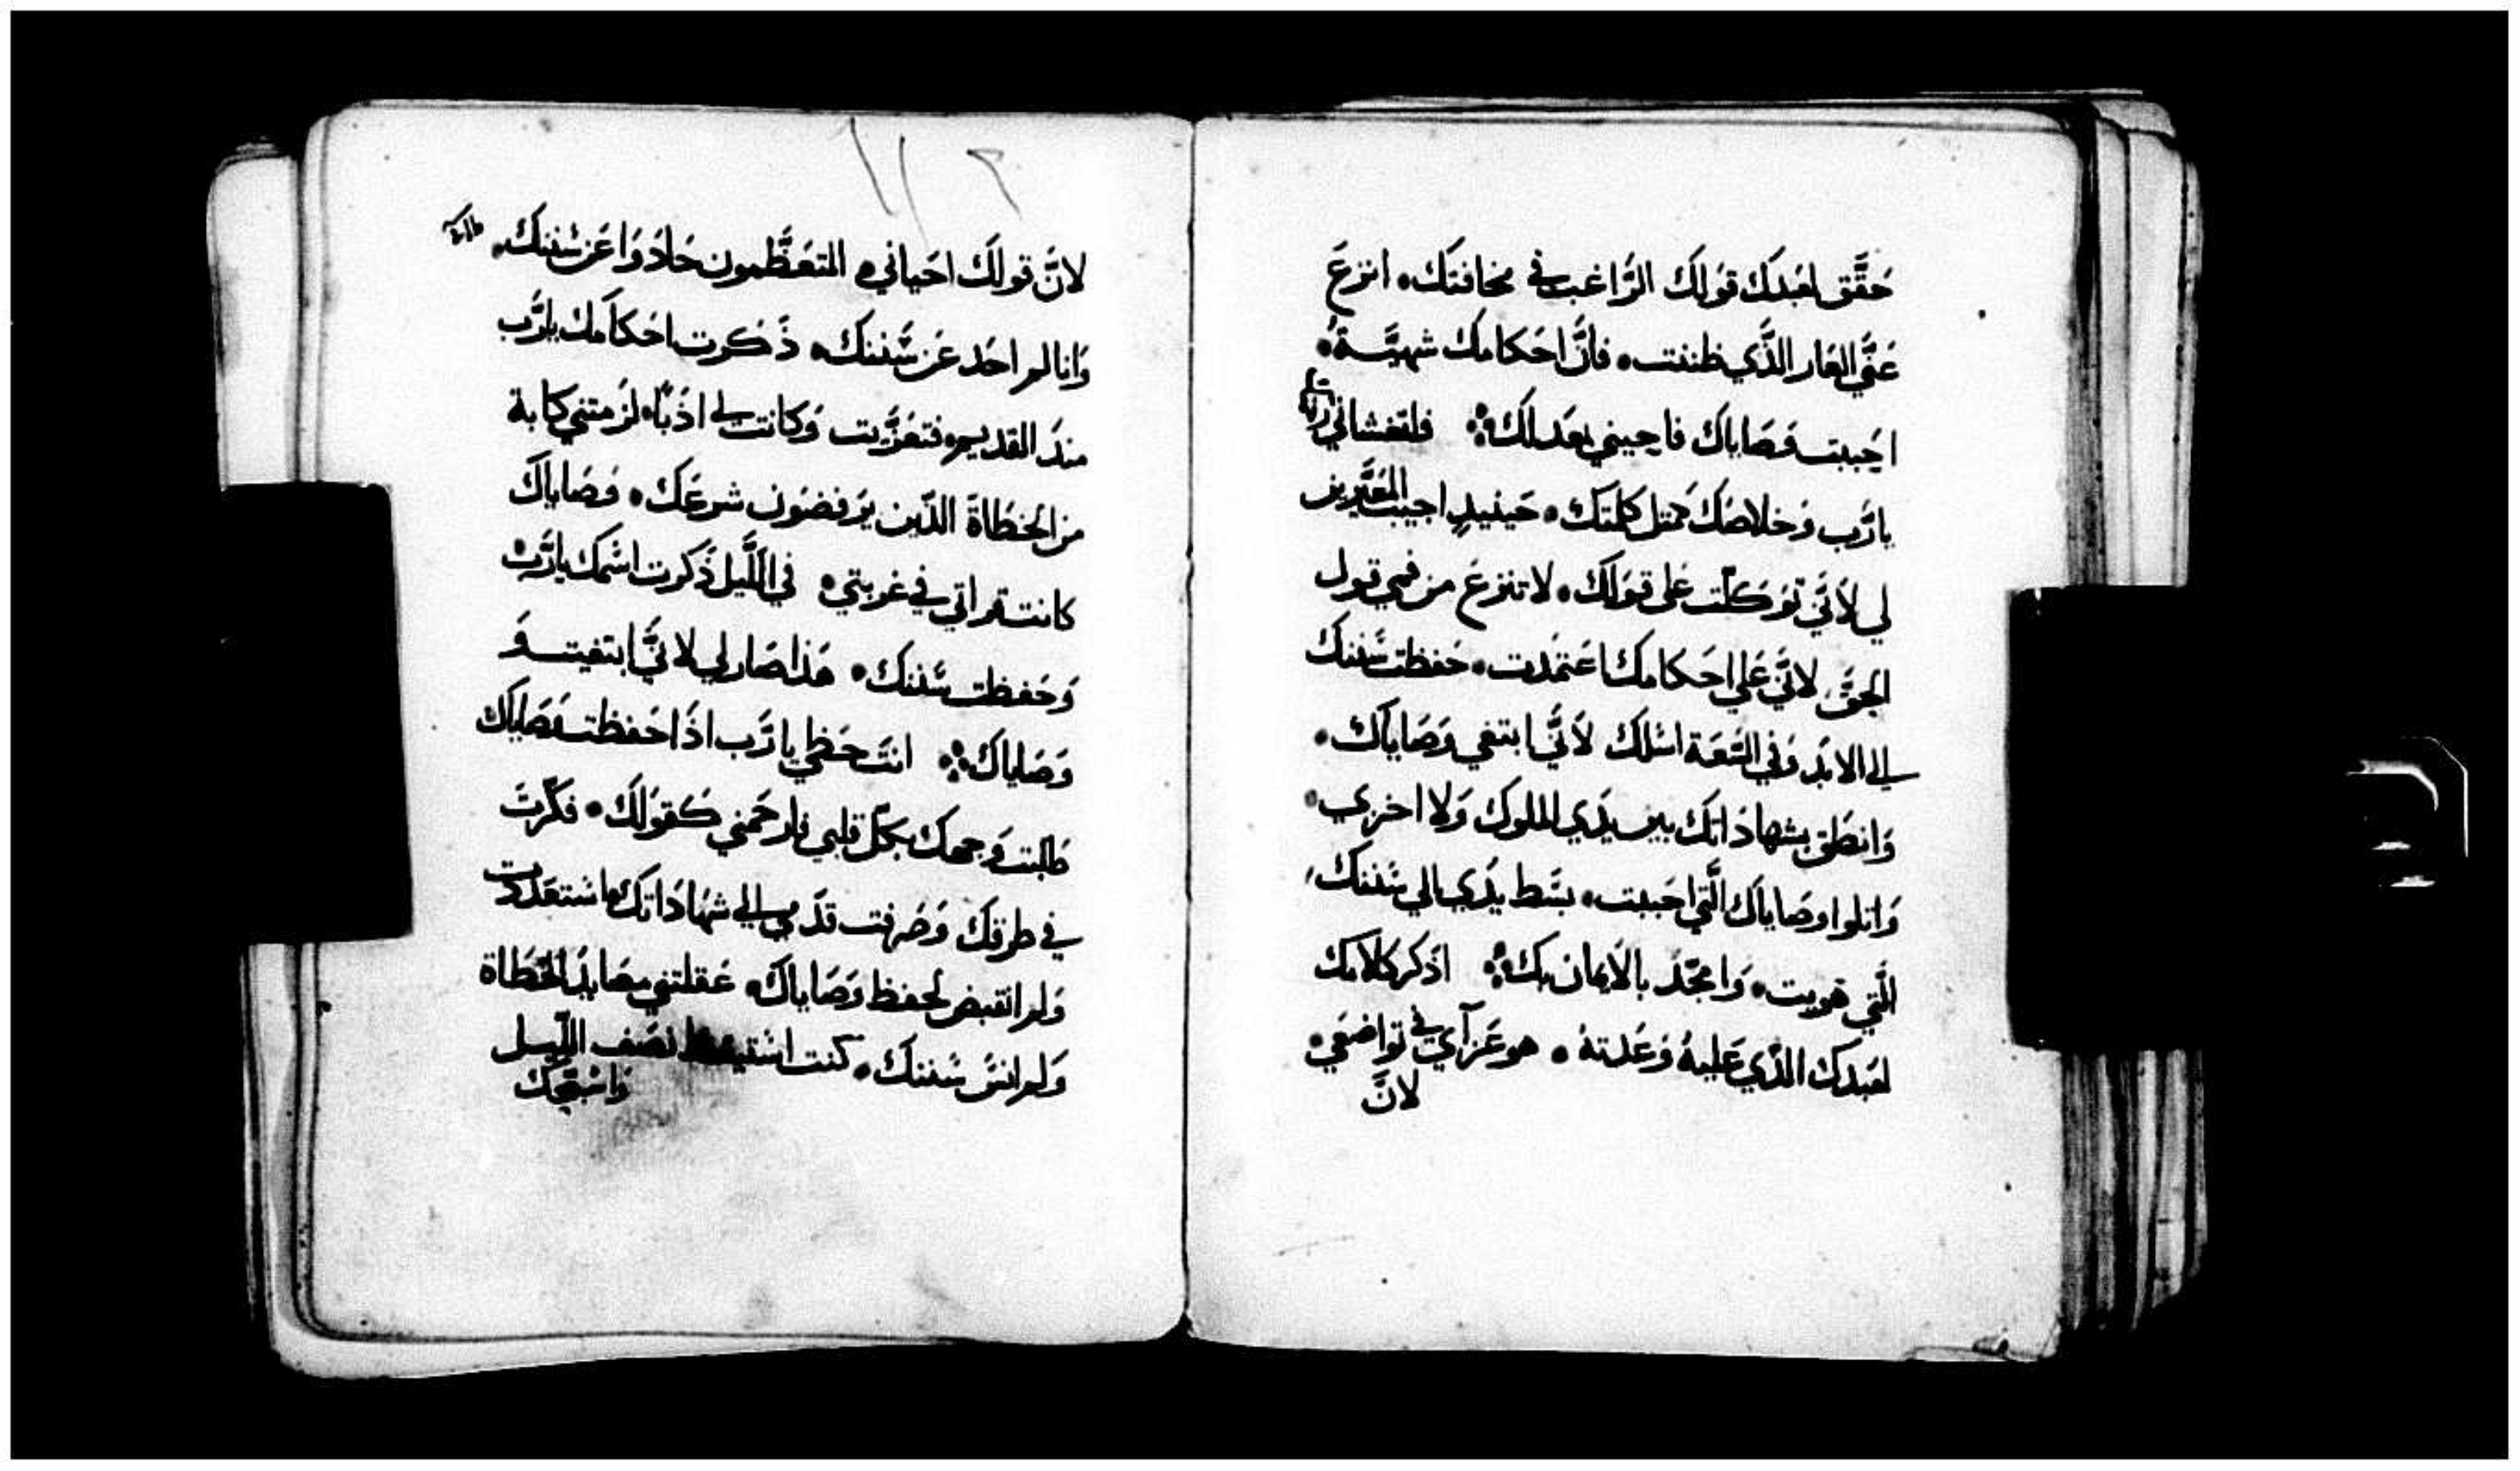 حَقَّق لعَبدَكَ قوَلكَ الرَّاغب في مخافتكَ. انزعَ
عَنَّي العَار الذَّي ظننت. فاَنَّ احَكامكَ شهيَّة.
احَببت وَصَاياكَ فاحييني بعَدلكَ فلتغشاني رحمتك
يارَّب وَخلاصَكَ كمَثل كلمتكَ. حَينيذٍ اجيب المعَيَّرين
لي لاَنَّي توَكلَّت عَلى قوَلكَ. لا تنزعَ من فمي قول
الحَقَّ لانَّي عَلي احَكامكَ اعتمَدت. حَفظت سَننكَ
الي الابَد وَفي السَّعَة اسَلكَ لاَنَّي ابتغي وَصَاياَكَ.
وَانطَلق بشهادَاتكَ بين يدَي الملوك وَلا اخزي.
وَاتلوا وصَاياكَ الَّتي احَببت. بسَّط يدَي الي سَننكَ
الَّتي هَويت. وَامجّدَ بالاَيمان بكَ اذَكر كلاَمكَ
لعَبدكَ الذَّي عَليهُ وَعَدتهُ. هو عَزآي في توَاضعَي.
لانَّ
لانَّ قولكَ احَياني. المتعَظَّمون حَادَوا عَن سَننكَ.
وَانا لم احَد عَن سَّننكَ. ذَكَرت احَكاَمكَ يارَّب
منذَ القديم. فتعَزَّيت وَكانت لي ادَباً. لزَمتني كابة
من الخطَاةَ الذَّين يرَفضَون شرعَكَ. وَصَاياكَ
كانت تمراتي في غربتي. في اللَّيل ذَكَرت اسَمكَ يارَّب
وَحَفظت سَننكَ. هَذا صَار لي لانَّي ابتغيت وَ
وَصَاياكَ انتَ حَظي يارَّب اذَا حَفظت وَصَاياَكَ
طَلبت وَجهكَ بكلّ قلبي فارحَمني كقوَلكَ. فكَّرتَ
في طرقكَ وَصَرفت قدَمي الي شهَادَاتكَ استعَدَدت
وَلم انقبض لحفظ وَصَاياكَ. عَقلتني مصَايدُ الخَطَاة
وَلم انسَ سَننكَ. كنت استيقظ نصَف اللَّيل
وَاسَبّحكَ